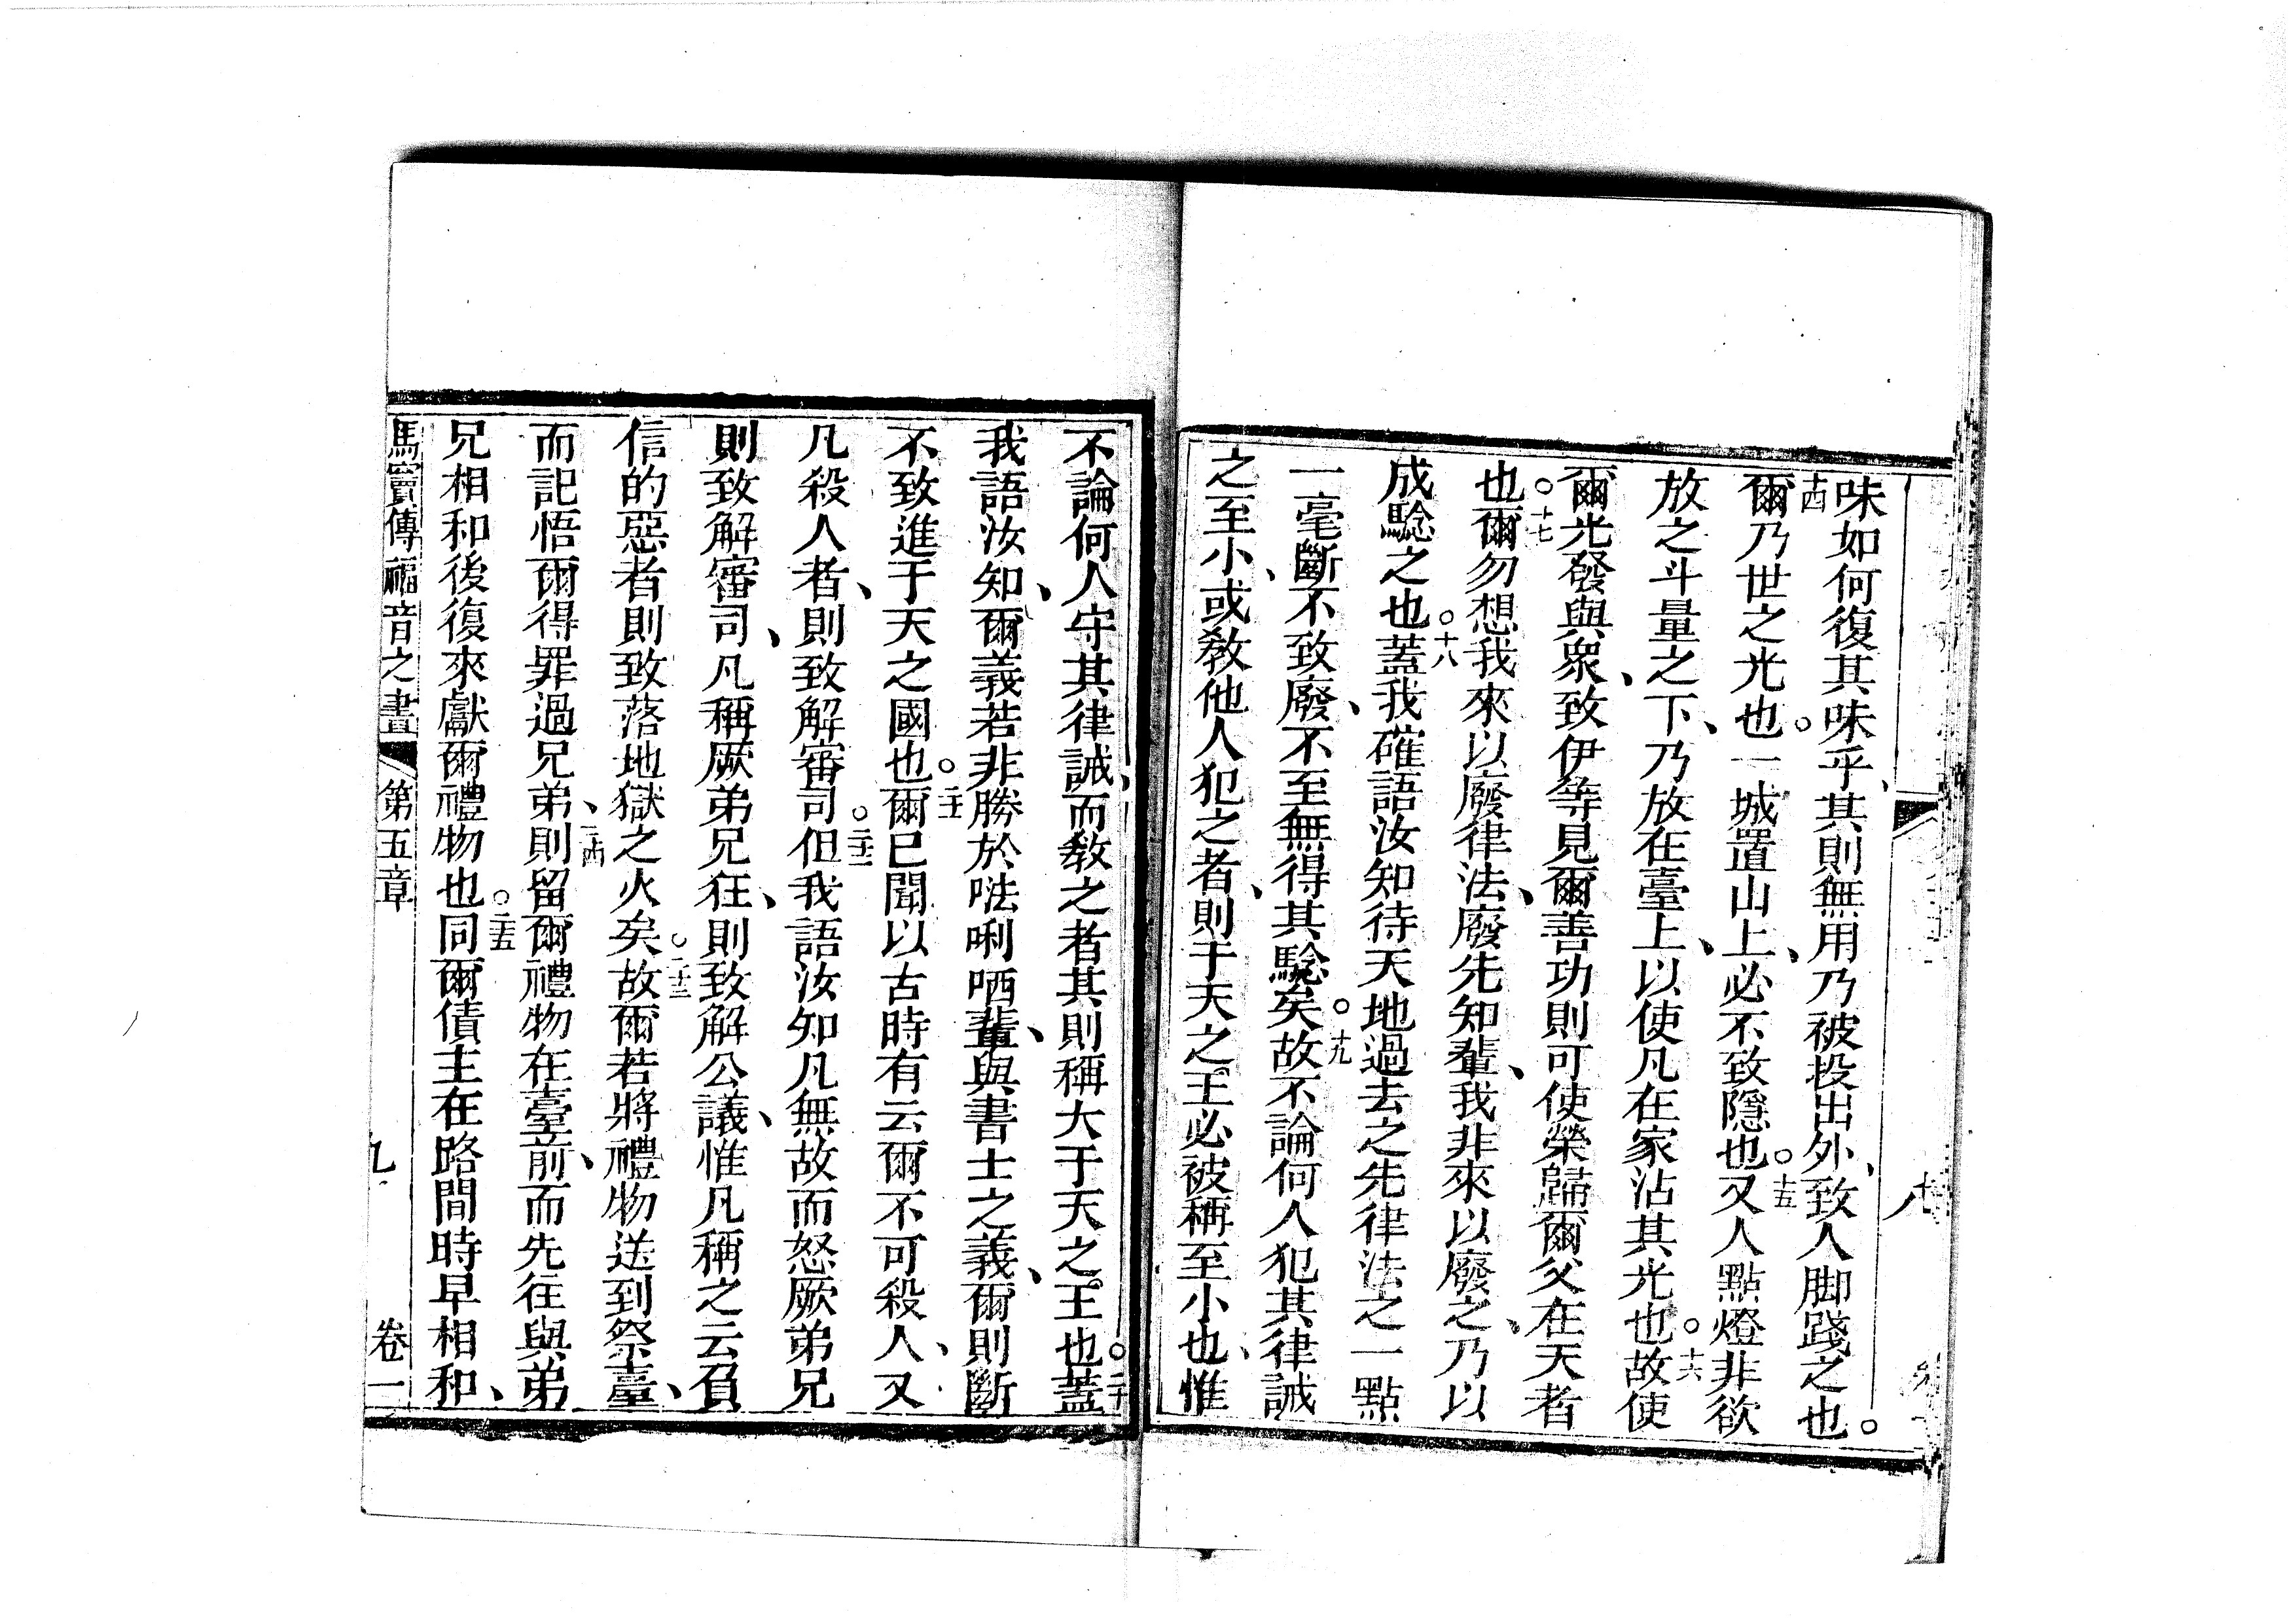 味如何復其味乎、其則無用乃被投出外、致人脚踐之也。
十四爾乃世之光也。一城置山上、必不致隱也。十五又人點燈非欲
放之斗量之下、乃放在臺上、以使凡在家沾其光也。十六故使
爾光發與衆、致伊等見爾善功則可使榮歸爾父在天者
也。十七爾勿想我來以廢律法、廢先知輩、我非來以廢之、乃以
成驗之也。十八蓋我確語汝知待天地過去之先律法之一點
一毫斷不致廢、不至無得其驗矣。十九故不論何人犯其律誡
之至小、或教他人犯之者、則于天之王必被稱至小也、惟
不論何人守其律誡、而教之者其則稱大于天之王也。二十蓋
我語汝知、爾義若非勝於𠵽唎哂輩、與書士之義、爾則斷
不致進于天之國也。二十一爾已聞以古時有云爾不可殺人、又
凡殺人者、則致解審司。二十二但我語汝知凡無故而怒厥弟兄
則致解審司、凡稱厥弟兄狂、則致解公議、惟凡稱之云負
信的惡者則致落地獄之火矣。二十三故爾若將禮物送到祭臺、
而記悟爾得罪過兄弟、二十四則留爾禮物在臺前、而先往與弟
兄相和後復來獻爾禮物也。二十五同爾債主在路間時早相和、
馬竇傳福音之書 第五章 九 卷一